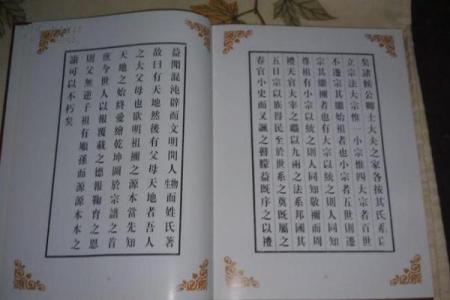 矣諸侯公卿士大夫之家各按其氏系以
立宗法大宗惟一小宗惟四大宗者百世
不遷宗其繼始祖者也小宗者五世則遷
宗其繼禰者也有大宗以統之則人同知
尊祖有小宗以統之則人同知敬禰而周
禮天官大宰之職以九兩之法系邦國其
五曰宗以族得民至於世系之奠既屬之
春官小史而又諷之瞽矇益既序之以禮
益聞混沌辟而文明開人生物而姓氏著
故曰有天地然後有父母天地者吾人
之大父母也欲明祖禰之源本當先知
天地之始終爰繪乾坤圖於宗譜之首
庶今世人以報覆載之德報鞠育之恩
則父無逆子祖有順孫而源源本本之
誼可以不朽矣